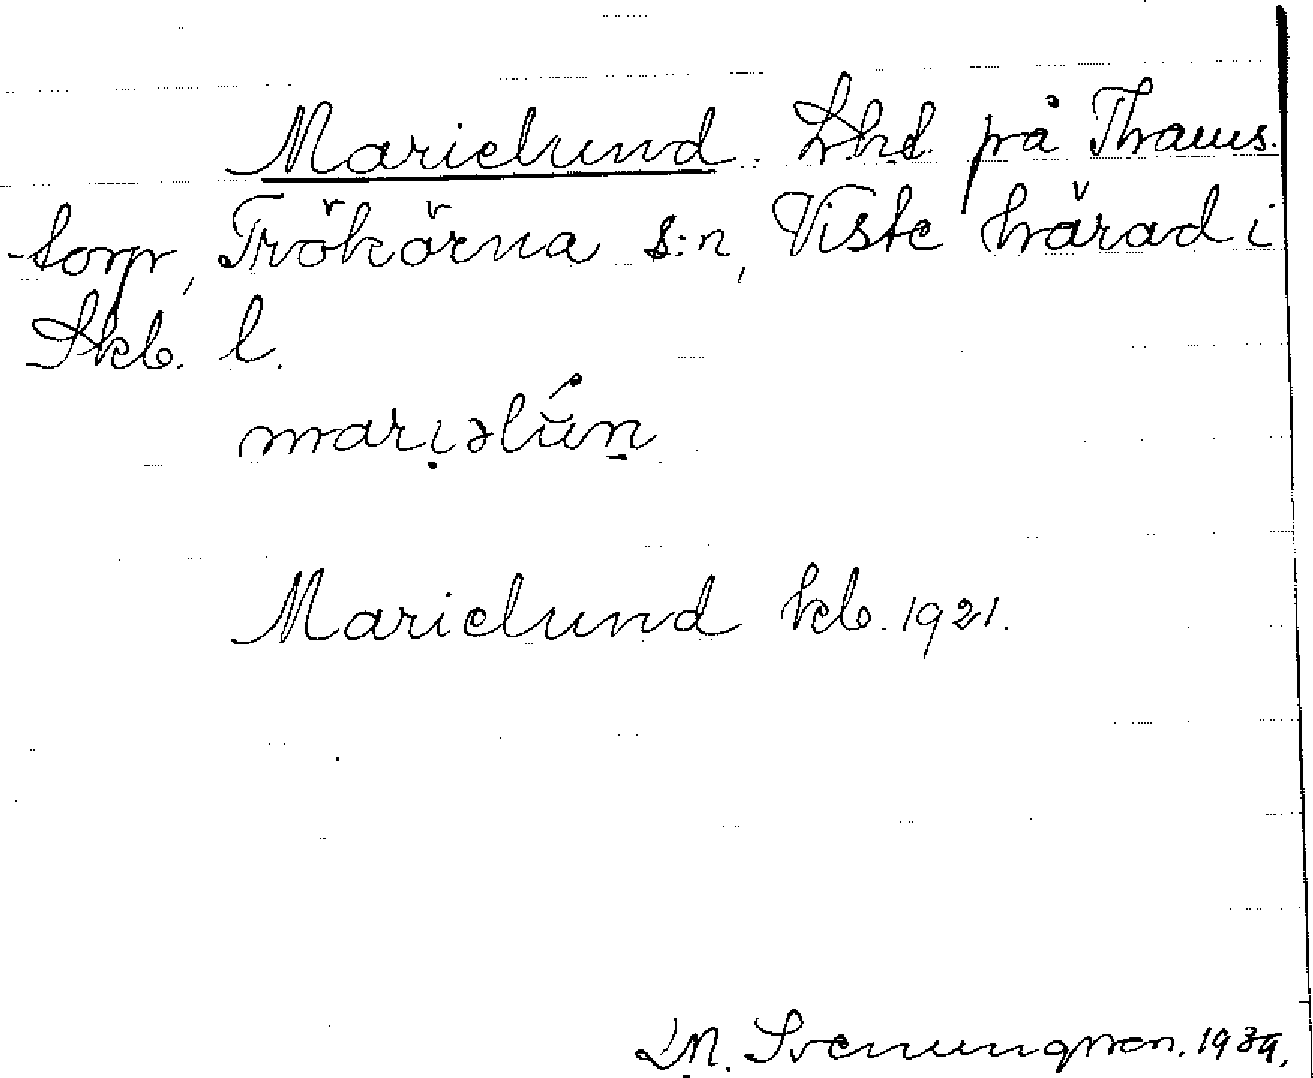 Marielund. Lhd. på Thams-
torp, Trökörna s:n, Viste härad i
Skb. l.
mariəlún
Marielund kb. 1921.
M. Svenungsson. 1939.